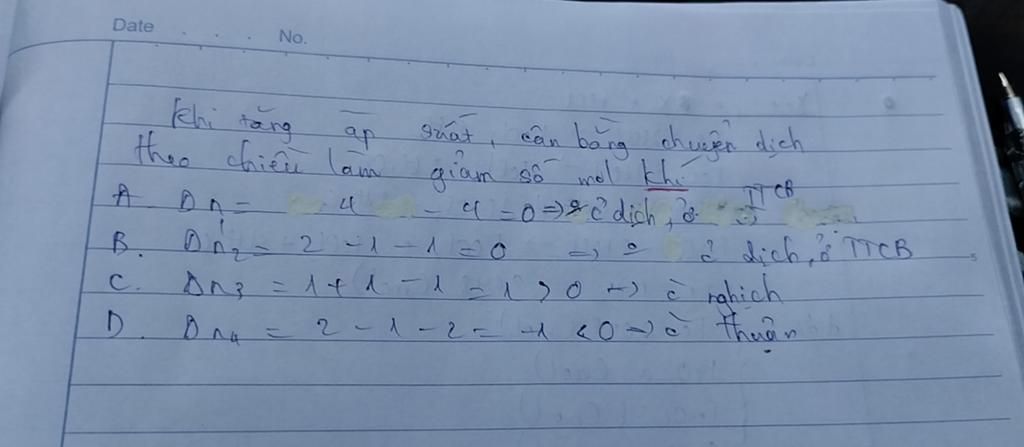 Date . . . No.
Khi tăng áp suất, cân bằng chuyển dịch
theo chiều làm giảm số mol khí
A Δn = 4 - 4 = 0 => dịch, ở TTCB
B. Δn2 = 2 - 1 - 1 = 0 => dịch, ở TTCB
C. Δn3 = 1 + 1 - 1 = 1 > 0 => nghịch
D. Δn4 = 2 - 1 - 2 = -1 < 0 => thuận